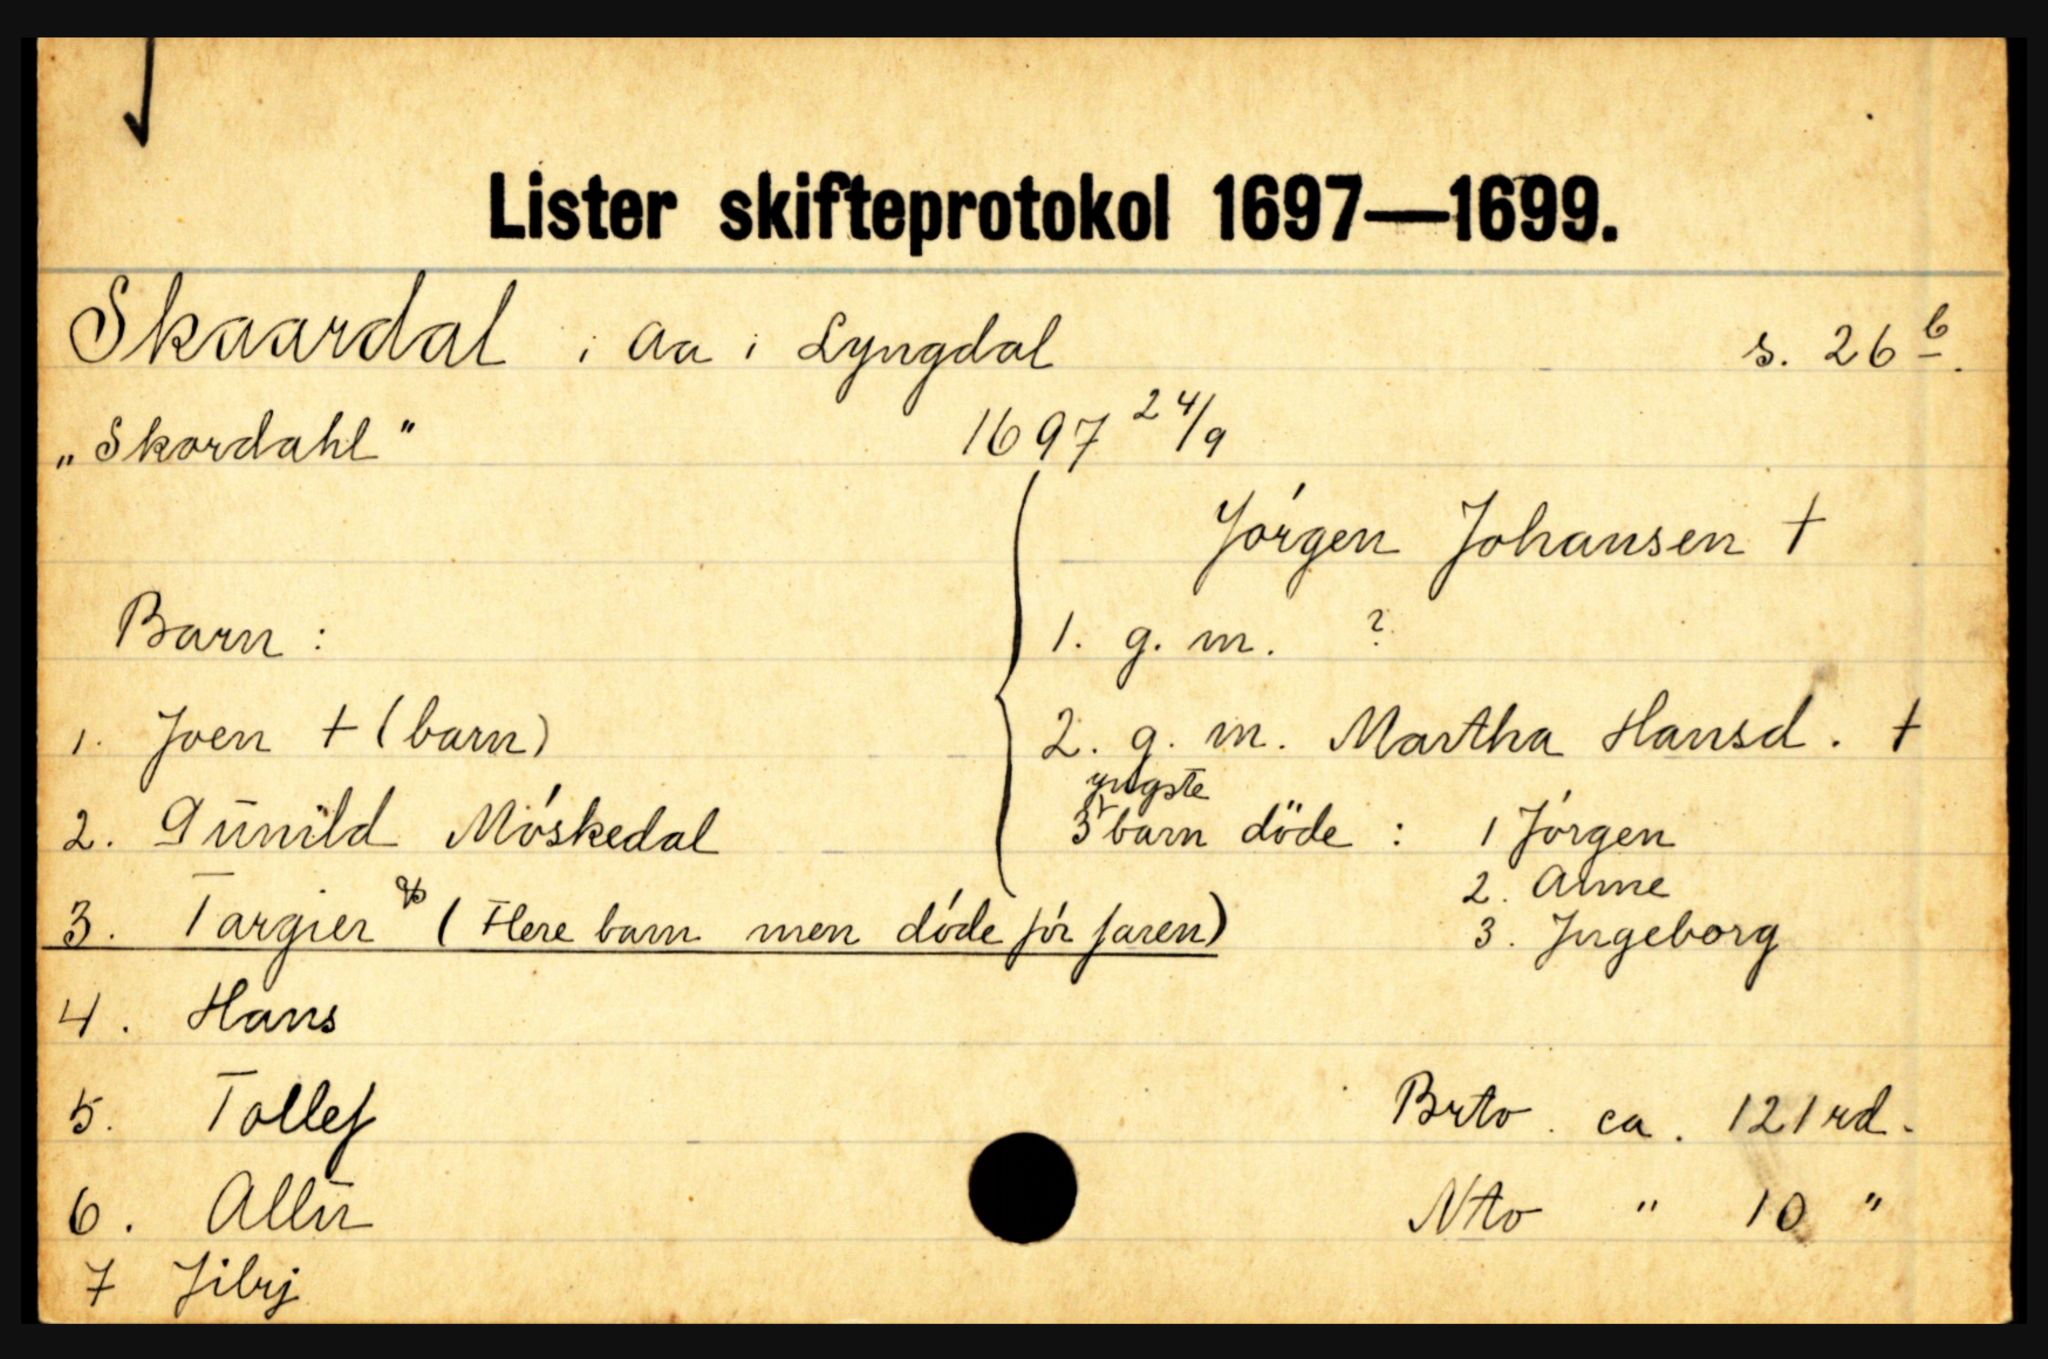 Lister skifteprotokol 1697—1699.
Skaardal i Aa i Lyngdal s. 26 b.
„Skordahl" 1697 24/9
Jórgen Johansen †
Barn : 1. g. m. ?
1. Joen † (barn) 2. g. m. Martha Hansd. †
yngste
2. Gūnild Móskedal 3 barn döde : 1 Jórgen
2. Anne
3. Targier (Flere barn men döde för faren) 3. Ingeborg
4. Hans
5. Tollef Brto. ca. 121 rd.
6. Nto " 10 "
7